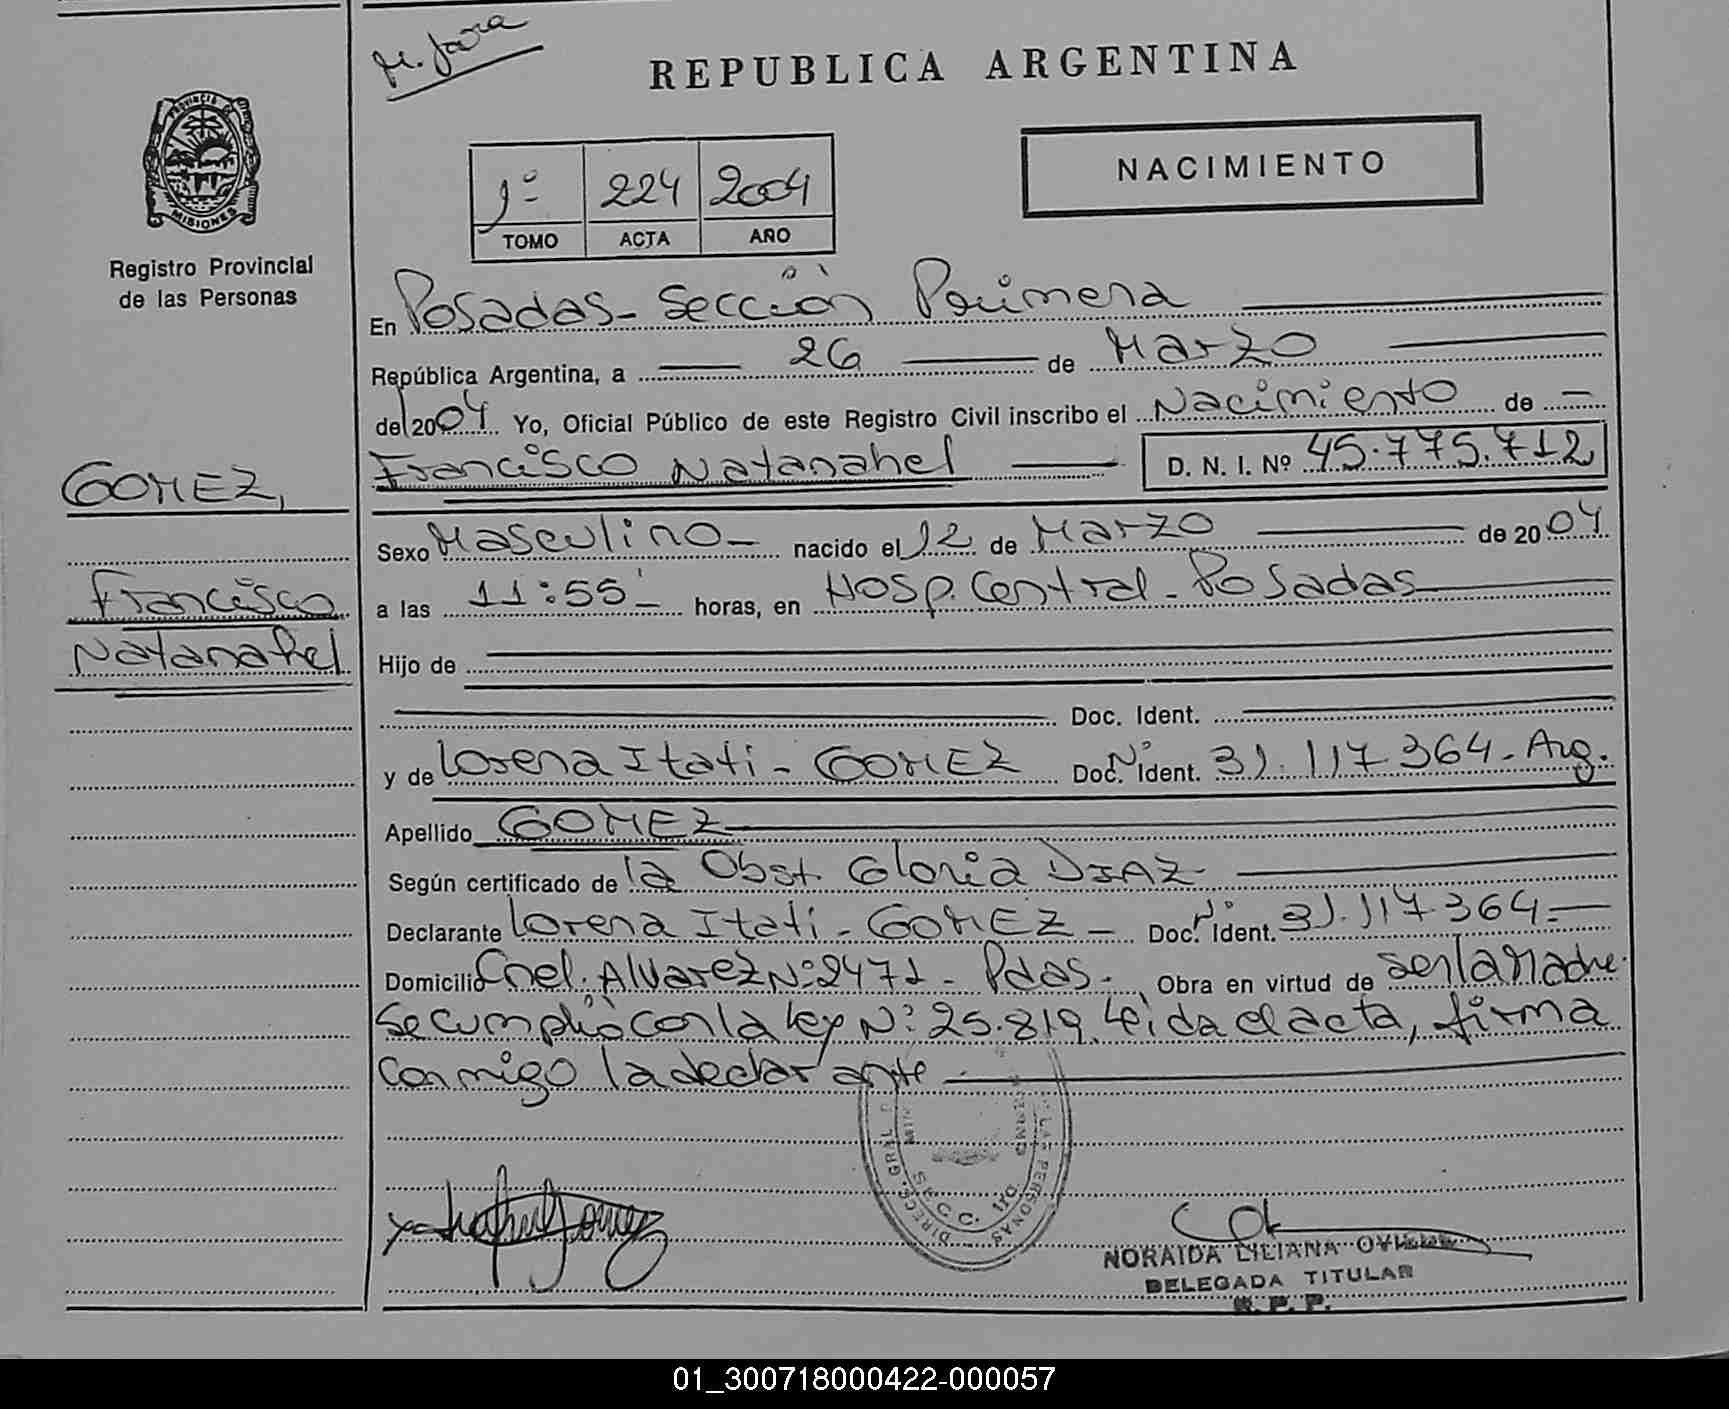 M. Jara
REPUBLICA ARGENTINA
PROVINCIA DE
MISIONES
Registro Provincial
de las Personas
1º 224 2004
TOMO ACTA AÑO
NACIMIENTO
En Posadas - Sección Primera
República Argentina, a 26 de Marzo
del 2004 Yo, Oficial Público de este Registro Civil inscribo el Nacimiento de
Francisco Natanahel D. N. I. Nº 45.775.712
GOMEZ,
Francisco
Natanahel
Sexo Masculino - nacido el 12 de Marzo de 2004
a las 11:55' - horas, en Hosp. Central - Posadas
Hijo de
Doc. Ident.
y de Lorena Itati - GOMEZ Doc. Nº Ident. 31.117.364 - Arg.
Apellido GOMEZ
Según certificado de la Obst. Gloria DIAZ
Declarante Lorena Itati - GOMEZ - Doc. Nº Ident. 31.117.364 -
Domicilio Cnel. Alvarez Nº 2471 - Pdas. Obra en virtud de ser la Madre.
Se cumplió con la ley Nº 25.819. Leída el acta, firma
conmigo la declarante
DIRECC. GRAL D LAS PERSONAS
SECC. 1ra
Gomez
NORAIDA LILIANA
DELEGADA TITULAR
R. P. P.
01_300718000422-000057